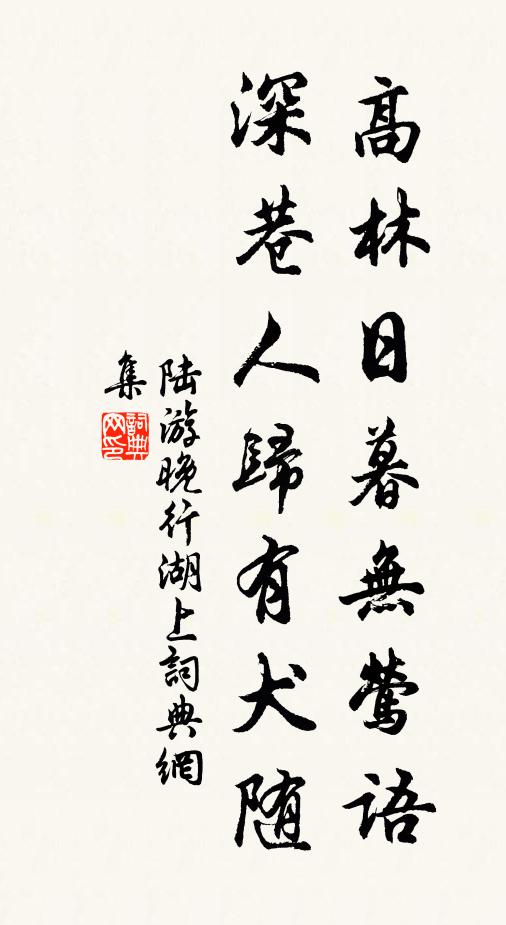 高林日暮無鶯語
深巷人歸有犬隨
陆游晚行湖上詞典網
集
詞典网印